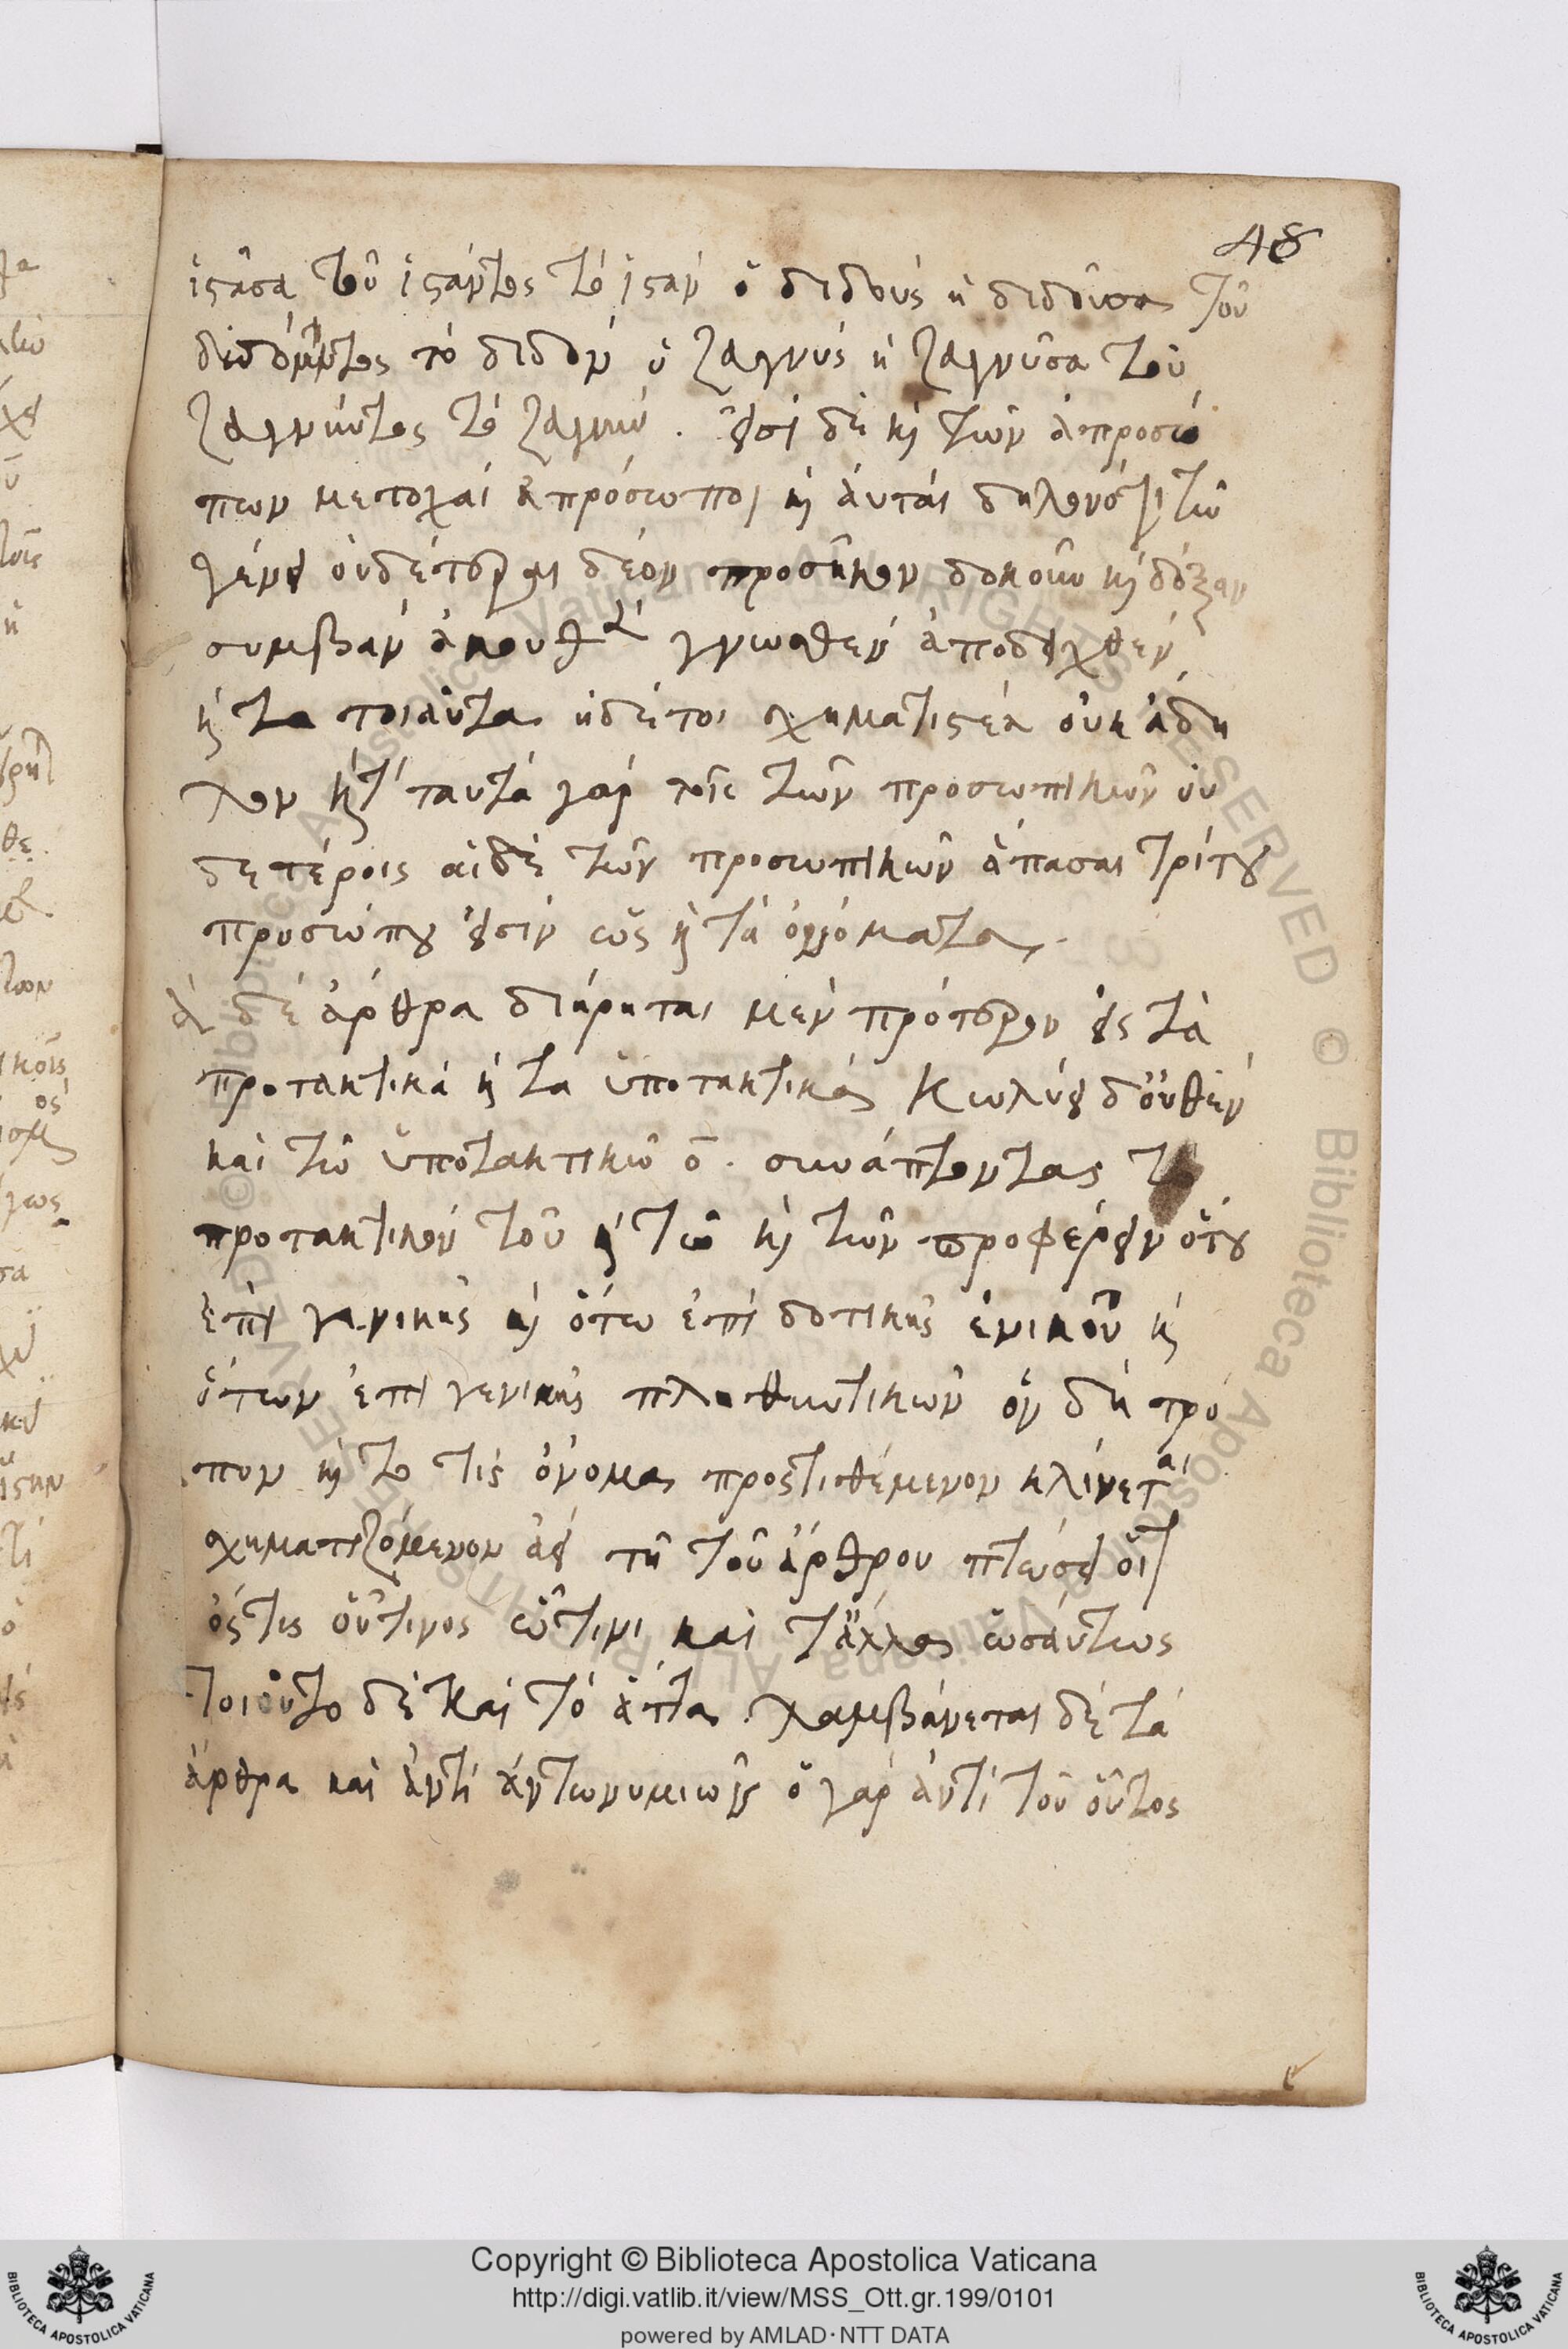 48
ἱστᾶσα τοῦ ἱστάντος τὸ ἱστάν ὁ διδούς ἡ διδοῦσα τοῦ
διδόντος τὸ διδόν ὁ ζαγνύς ἡ ζαγνῦσα τοῦ
ζαγνύντος τὸ ζαγνύν. εἰσὶ δὲ καὶ τῶν ἀπροσώ
πων μετοχαὶ ἀπρόσωποι καὶ αὐταὶ δηλονότι τῶ
γένει οὐδέτεραι δέον προσῆκον δοκοῦν καὶ δόξαν
συμβὰν ἀκουσθὲν γνωσθὲν ἀποδειχθὲν
καὶ τὰ τοιαῦτα ἡδέτοι σχηματιστέα οὐκ ἄδη
λον κατὰ ταυτὰ γὰρ τοῖς τῶν προσωπικῶν οὐ
δετέροις αἱ δὲ τῶν προσωπικῶν ἅπασαι τρίτου
προσώπου εἰσὶν ὡς καὶ τὰ ὀνόματα.
Τὰ δὲ ἄρθρα διήρηται μὲν πρότερον εἰς τὰ
προτακτικὰ καὶ τὰ ὑποτακτικά κωλύει δ' οὐθὲν
καὶ τῶ ὑποτακτικῶ ὅ. συνάπτοντας τὸ
προτακτικὸν τοῦ καὶ τῶ καὶ τῶν προφέρειν ὅτου
ἐπὶ γενικῆς καὶ ὅτω ἐπὶ δοτικῆς ἑνικοῦ καὶ
ὅτων ἐπὶ γενικῆς πληθυντικῶν ὃν δὴ τρό
πον καὶ τὸ τὶς ὄνομα προστιθέμενον κλίνεται
σχηματιζόμενον ἀεὶ τῆ τοῦ ἄρθρου πτώσει οἷ
ὅστις οὗτινος ὧτινι καὶ τἄλλα ὡσαύτως
τοιοῦτο δὲ καὶ τὸ ἅττα. λαμβάνεται δὲ τὰ
ἄρθρα καὶ ἀντὶ ἀντωνυμιῶν ὁ γὰρ ἀντὶ τοῦ οὗτος
Copyright © Biblioteca Apostolica Vaticana
http://digi.vatlib.it/view/MSS_Ott.gr.199/0101
powered by AMLAD·NTT DATA